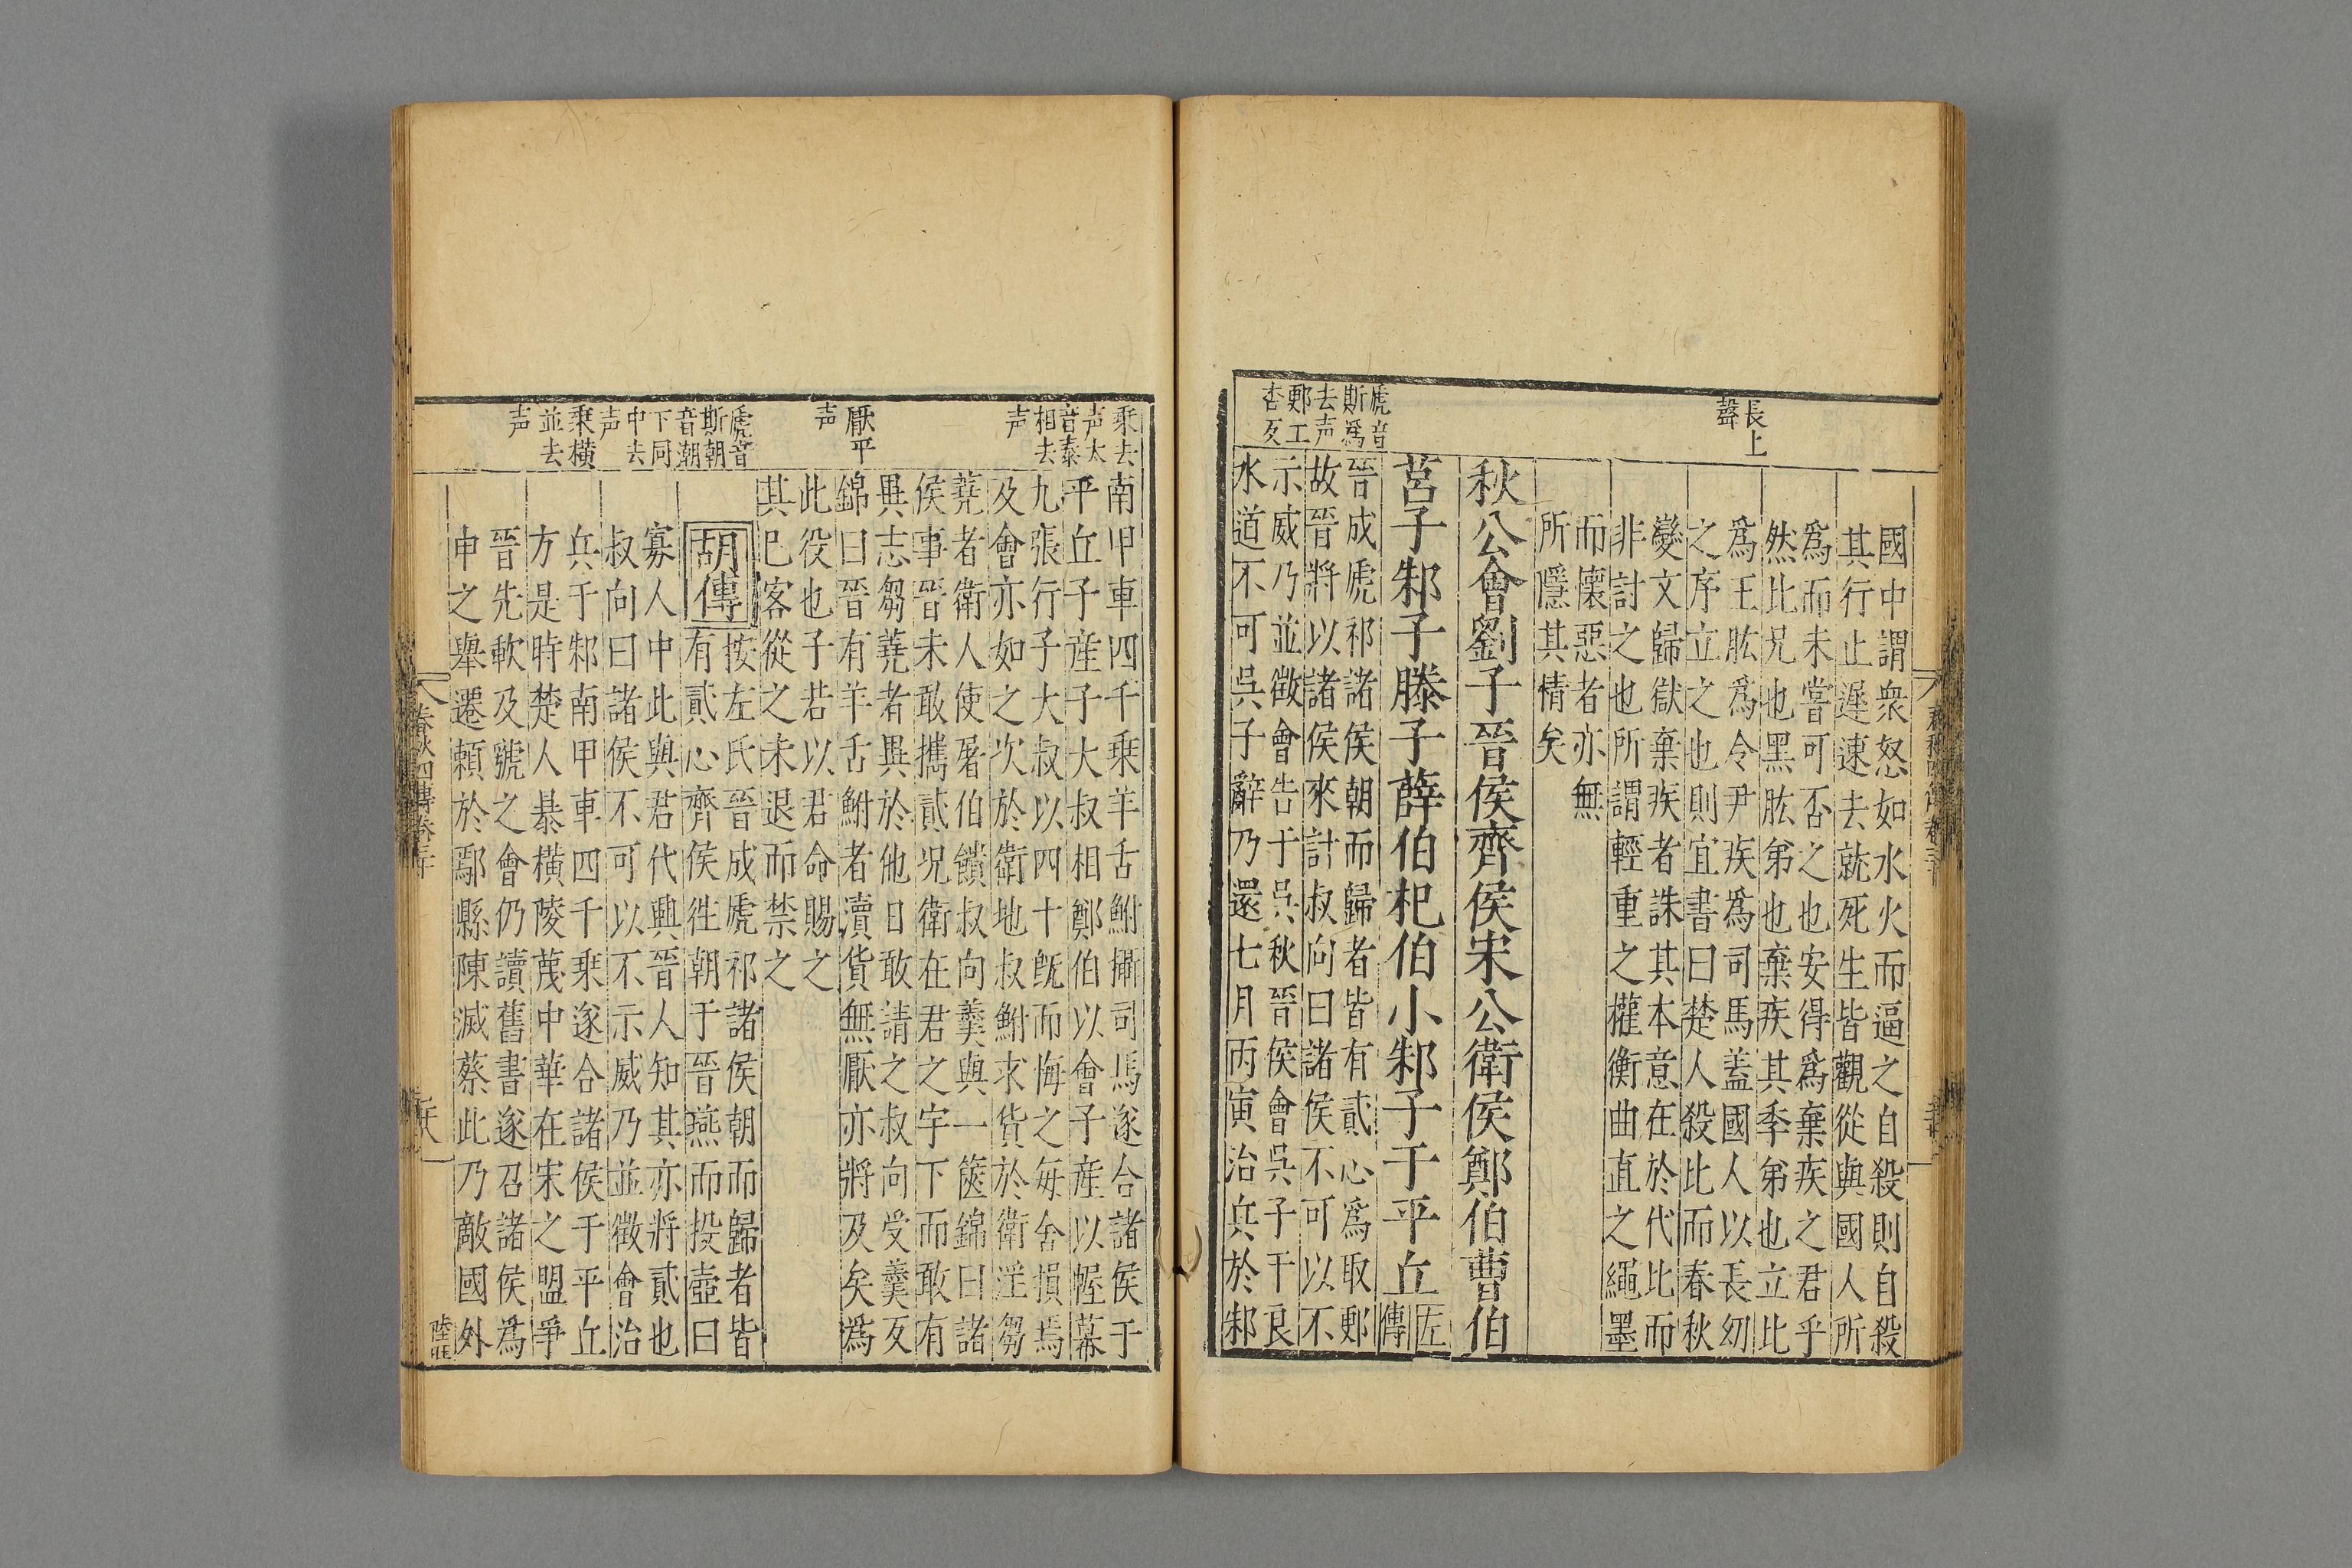 長上
聲
虒音
斯爲
去声
鄭工
杏反
國中謂衆怒如水火而逼之自殺則自殺
其行止遲速去就死生皆觀從與國人所
爲而未嘗可否之也安得爲棄疾之君乎
然比兄也黑肱弟也棄疾其季弟也立比
爲王肱爲令尹疾爲司馬蓋國人以長幼
之序立之也則宜書曰楚人殺比而春秋
變文歸獄棄疾者誅其本意在於代比而
非討之也所謂輕重之權衡曲直之繩墨
而懷惡者亦無
所隱其情矣
秋公會劉子晉侯齊侯宋公衛侯鄭伯曹伯
莒子邾子滕子薛伯杞伯小邾子于平丘
左傳
晉成虒祁諸侯朝而歸者皆有貳心爲取鄆
故晉將以諸侯來討叔向曰諸侯不可以不
示威乃並徵會告于吳秋晉侯會吳子于良
水道不可吳子辭乃還七月丙寅治兵於邾
乘去
声太
音泰
相去
声
厭平
声
虒音
斯朝
音朝
下同
中去
声
乘橫
並去
声
南甲車四千乘羊舌鮒攝司馬遂合諸侯于
平丘子産子大叔相鄭伯以會子産以幄幕
九張行子大叔以四十旣而悔之每舍損焉
及會亦如之次於衛地叔鮒求貨於衛淫芻
蕘者衛人使屠伯饋叔向羹與一篋錦曰諸
侯事晉未敢攜貳况衛在君之宇下而敢有
異志芻蕘者異於他日敢請之叔向受羹反
錦曰晉有羊舌鮒者瀆貨無厭亦將及矣爲
此役也子若以君命賜之
其已客從之未退而禁之
胡傳
按左氏晉成虒祁諸侯朝而歸者皆
有貳心齊侯往朝于晉燕而投壺曰
寡人中此與君代興晉人知其亦將貳也
叔向曰諸侯不可以不示威乃並徵會治
兵于邾南甲車四千乘遂合諸侯于平丘
方是時楚人暴橫陵蔑中華在宋之盟爭
晉先軟及虢之會仍讀舊書遂召諸侯爲
申之舉遷賴於鄢縣陳滅蔡此乃敵國外
春秋四傳卷三十